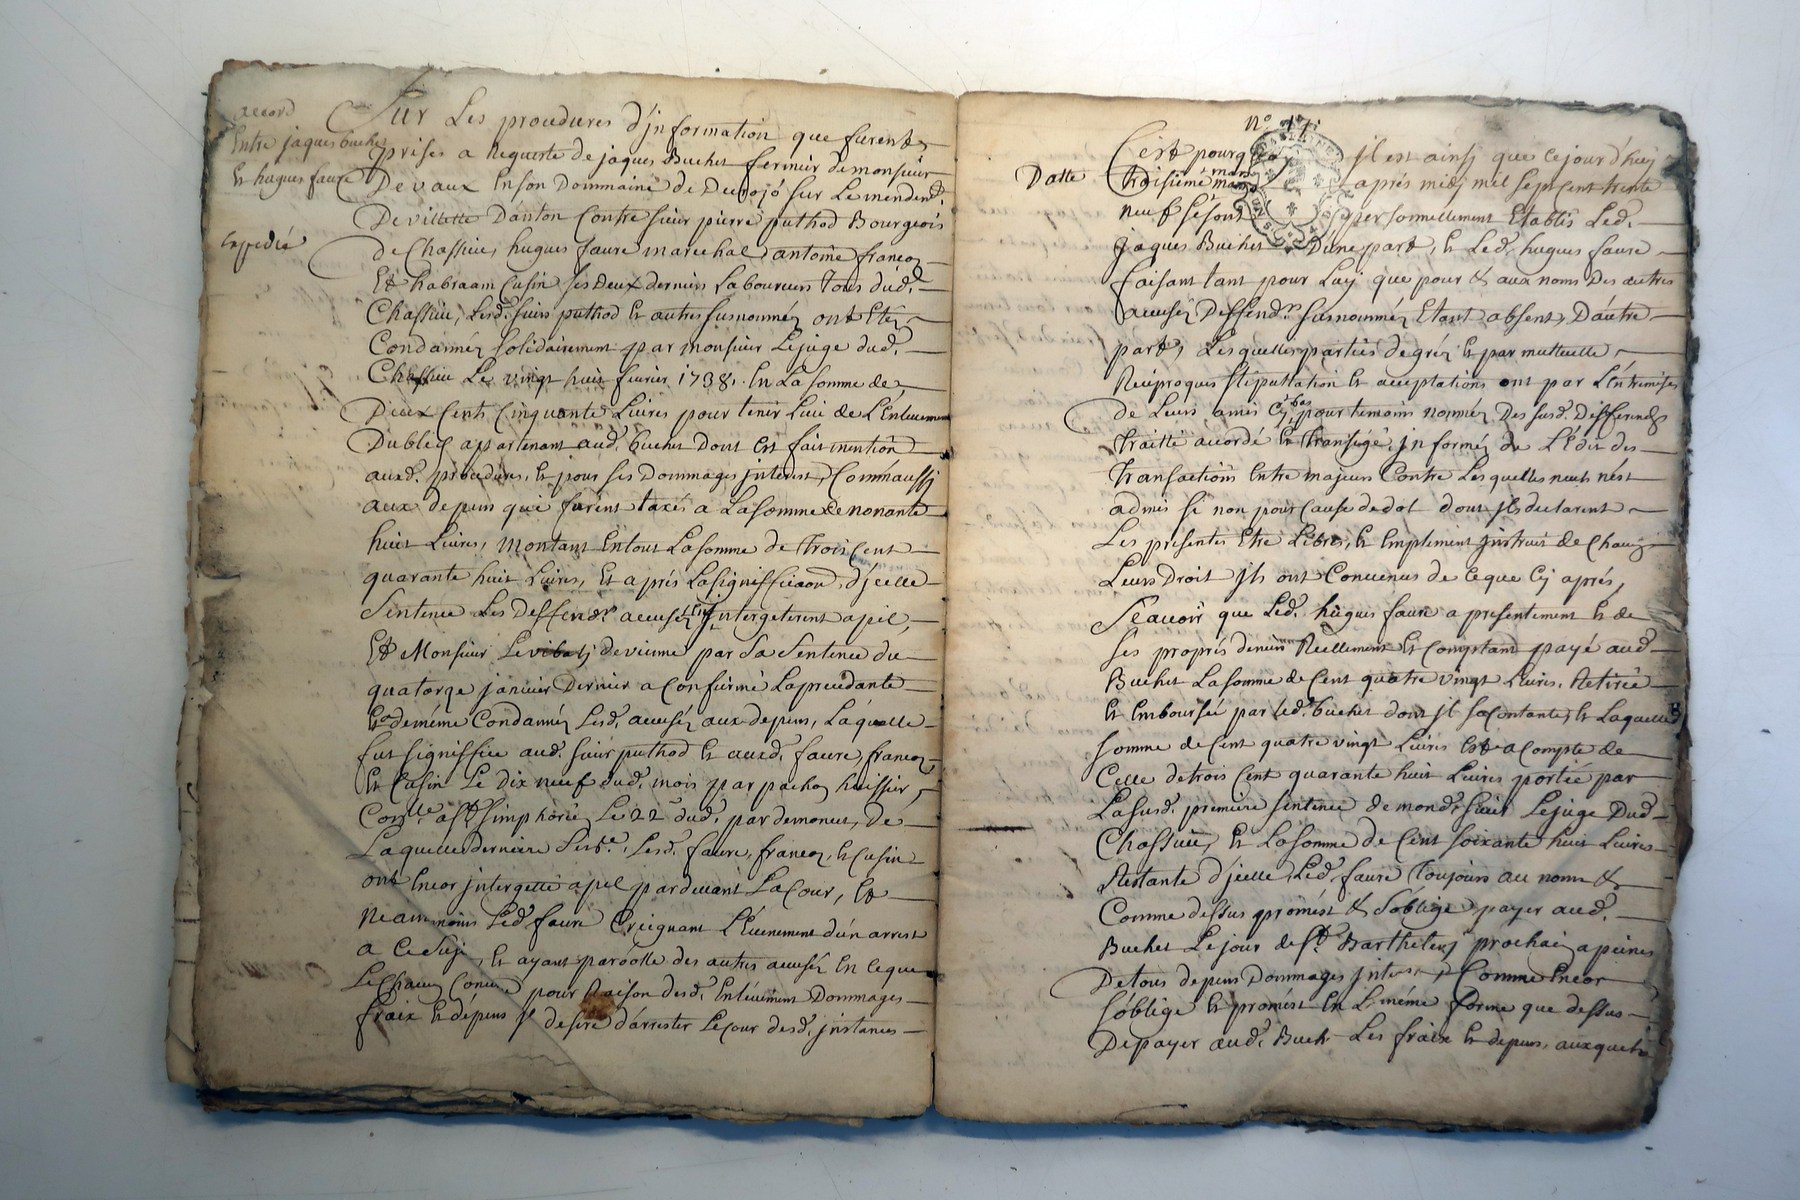 accord
Entre jaques buchet
Et hugues faure
Expedié
Sur Les procedures d'jnformation que furent
prises a Requeste de jaques Buchet fermier de monsieur
De vaux En son Dommaine de Sur Le mendem.t
De villette D'anton Contre sieur pierre puthod Bourgeois
de Chassieu, hugues faure marechal antoine françon
Et habraam Cusin Ses deux derniers Laboureurs Tous dud.
Chassieu, Lesd. sieurs puthod Et autres susnommés ont Etez
Condamnéz solidairement par monsieur Lejuge dud.
Chassieu Le vingt huit fevrier 1738. En La somme de
Deux Cents Cinquante Livres pour tenir Lieu de L'Enlevement
Dubled appartenant aud. buchet Dont Est fait mention
auxd. procedures, Et pour ses Dommages jnterest, Comm'aussj
aux depens qui furent taxés a Lasomme de nonante
huit Livres, montant Entout Lasomme de Trois Cent
quarante huit Livres, Et aprés Lasignifficaon d'jcelle
Sentence Les deffend.rs accuséz En jntergeterent apel,
Et Monsieur Levibalj devienne par Sa Sentence du
quatorze janvier Dernier a Confirmé Laprecedante
Et demême Condamnéz Lesd. accuséz aux depens, Laquelle
fut signiffiée aud. sieur puthod Et auxd. faure, françon
Et Cusin Le dix neuf dud. mois par pachoz huissier,
a s.t simphorié Le 22 dud. par demonet, de
Laquelle derniere Sent.ce Lesd. faure, françon, Et Cusin
ont Encor jntergetté apel pardevant La Cour, Et
Neammoins Led. faure Creignant L'Evenement d'un arrest
a Cesuje, Et ayant parolle des autres accuséz En ceque
Le Chacun Concerne pour Raison desd. Enlevement Dommages
fraix Et dépens jl desire d'arrester Lecour desd. jnstances
N.o 17:
Datte
C'est pourquoy jl est ainsj que cejour d'huy
troisième mars aprés midj mil sept cent trente
neuf se sont personnellement Etablis Led.
jaques Buchet D'une part, Et Led. hugues faure
faisant tant pour Luy que pour & aux noms Des autres
accuséz Deffend.rs susnomméz Etant absent, D'autre
part, Lesquelles parties degréz Et par mutuelle
Reciproques stipullation Et acceptations ont par L'Entremises
de Leurs amis Cy bas pour temoins nomméz Des susd. Differends
traitté accordé Et Transigé, jnforméz de L'Edit des
Transactions Entre majeurs Contre Lesquelles neuls n'est
admis si non pour Cause de dol dont jls declarent
Les presentes Etre Libres, Et Emplement jnstruit de Chaun
Leurs Droit jls ont Convenus de ceque Cy aprés,
Sçavoir que Led. hugues faure a presentement Et de
ses proprés deniers Réellement Et Comptant payé aud.
Buchet Lasomme de Cent quatre vingt Livres, Retirée
Et Emboursée par Led. buchet dont jl sa Contante, Et Laquelle
somme de Cent quatre vingt Livres Est a Compte de
Celle detrois Cent quarante huit Livres portée par
La susd. premiere sentence de mond. sieur Lejuge Dud.
Chassieu, Et Lasomme de Cent soixante huit Livres
Restante d'jcelle, Led. faure Toujours au noms &
Comme dessus promést & s'oblige payer aud.
Buchet Lejour de s.t Barthelemj prochain apeines
Detous depens Dommages jnterest, Comme Encor
s'oblige Et promést En Lmême forme que dessus
Depayer aud. Buch Les fraix Et depens, auxquels